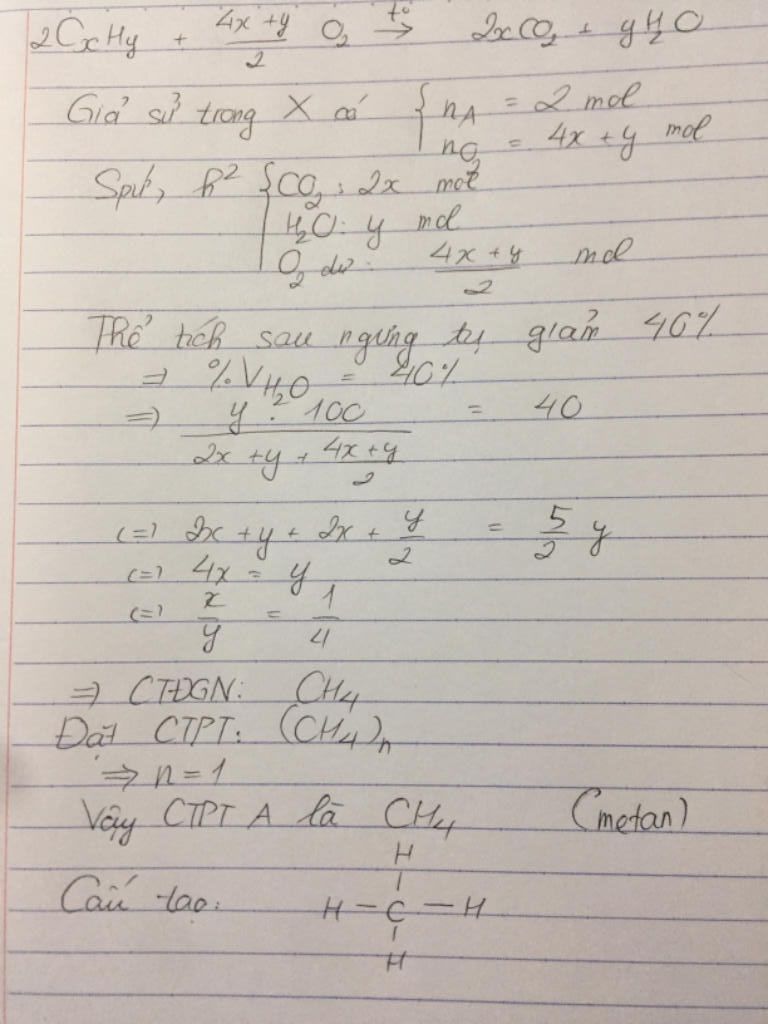 2CxHy + (4x+y)/2 O2 t°→ 2xCO2 + yH2O
Giả sử trong X có { nA = 2 mol
nO2 = 4x+y mol
Spứ, h² { CO2: 2x mol
H2O: y mol
O2 dư: (4x+y)/2 mol
Thể tích sau ngưng tụ giảm 40%
=> %VH2O = 40%
=> (y . 100)/(2x+y+(4x+y)/2) = 40
<=> 2x+y+2x+y/2 = 5/2 y
<=> 4x = y
<=> x/y = 1/4
=> CTĐGN: CH4
Đặt CTPT: (CH4)n
=> n=1
Vậy CTPT A là CH4 (metan)
H
|
Cấu tạo: H – C – H
|
H